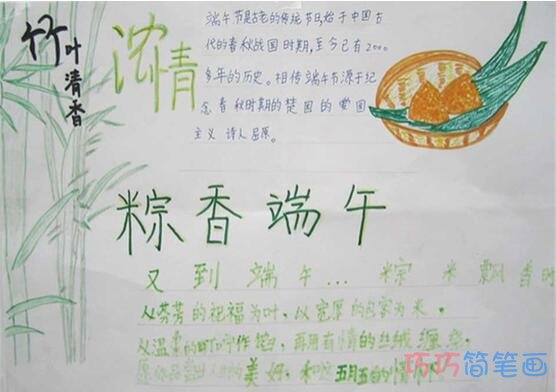 竹叶清香
浓情
端午节是古老的传统节日始于中国古
代的春秋战国时期,至今已有2000
多年的历史。相传端午节源于纪
念春秋时期的楚国的爱国
主义 诗人屈原。
粽香端午
又到端午...粽米飘香时
以芬芳的祝福为叶,以宽厚的包容为米,
以温柔的叮咛作馅,再用友情的丝绒缠绕,
愿你品尝出人生的美妙和五月五的情
巧巧简笔画